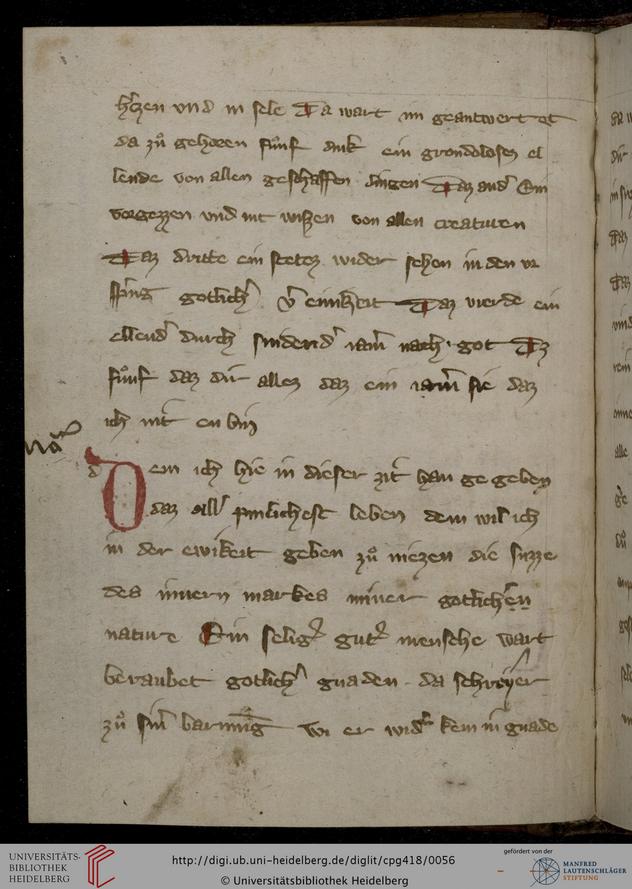 h'czen vnd in sele Da wart im geantwertet
da zů gehoren fůnf dink ein grondolosez el
lende von allen geschaffen dingen Daz and' Ein
vorgezzen vnd nit wiszen von allen creaturen
Daz dritte ein stetez wider sehen in den vr
spring gotlich' einikeit Daz vierde ein
ellend' durch nach got Dz
fůnf daz dir allez daz ein iam' sie daz
ich nit en bin
Nota
Dem ich hie in dieser zit han ge geben
daz aller pinlichest leben dem wil ich
in der ewikeit geben zů niezen die suzze
des innern markes miner gotlichen
nature Ein selig' gut' mensche wart
beraubet gotlich' gnaden da schriyer
zů sin' barmg wi er wid' kem in gnade
UNIVERSITÄTS-
BIBLIOTHEK
HEIDELBERG
http://digi.ub.uni-heidelberg.de/diglit/cpg418/0056
© Universitätsbibliothek Heidelberg
gefördert von der
MANFRED
LAUTENSCHLÄGER
STIFTUNG